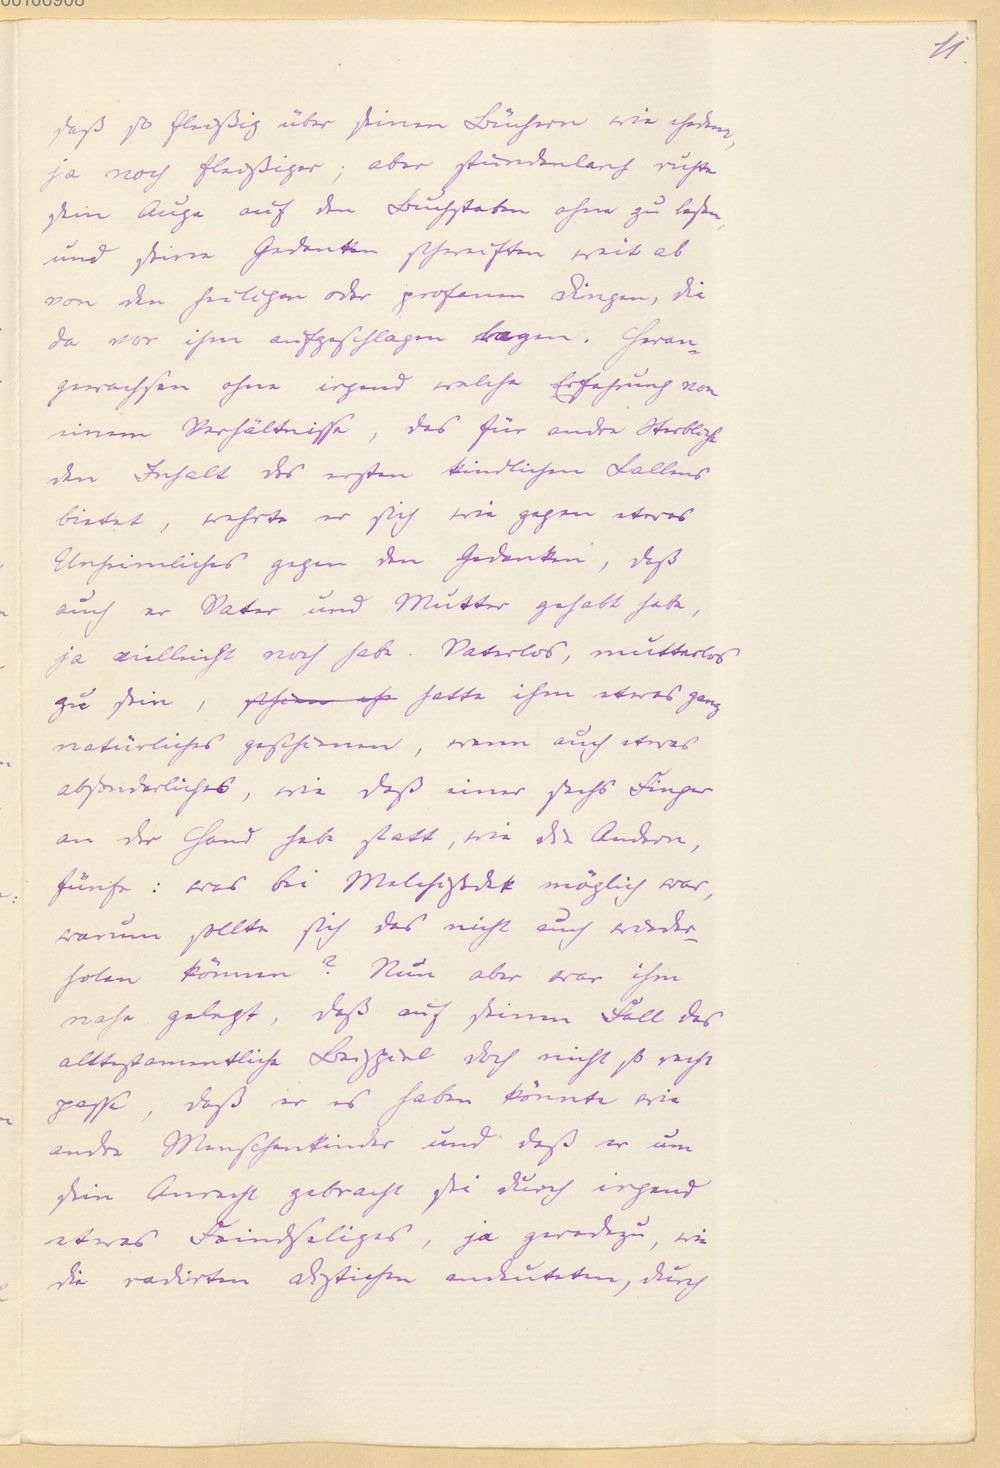 11.
saß so fleißig über seinen Büchern wie ehedem,
ja noch fleißiger; aber stundenlang ruhte
sein Auge auf den Buchstaben ohne zu lesen,
und seine Gedanken schweiften weit ab
von den heiligen oder profanen Dingen, die
da vor ihm aufgeschlagen lagen. Heran-
gewachsen ohne irgend welche Erfahrung von
einem Verhältnisse, das für andre Sterbliche
den Inhalt des ersten kindlichen Lallens
bietet, wehrte er sich wie gegen etwas
Unheimliches gegen den Gedanken, daß
auch er Vater und Mutter gehabt habe,
ja vielleicht noch habe. Vaterlos, mutterlos
zu sein, schien ihm hatte ihm etwas ganz
natürliches geschienen, wenn auch etwas
absonderliches, wie daß einer sechs Finger
an der Hand habe statt, wie die Andern,
fünfe: was bei Melchisedek möglich war,
warum sollte sich das nicht auch wieder-
holen können? Nun aber war ihm
nahe gelegt, daß auf seinen Fall das
alttestamentliche Beispiel doch nicht so recht
passe, daß er es haben könnte wie
andre Menschenkinder und daß er um
sein Anrecht gebracht sei durch irgend
etwas Feindseliges, ja geradezu, wie
die radirten Distichen andeuteten, durch